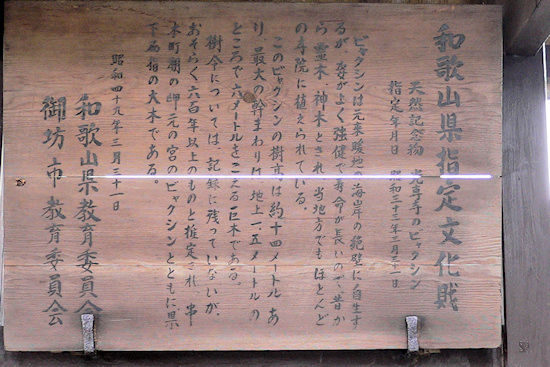 和歌山県指定文化財
天然記念物 光専寺のビャクシン
指定年月日 昭和三十三年三月三十一日
ビャクシンは元来暖地の海岸の絶壁に自生す
るが、姿がよく強健で寿命が長いので、昔か
ら霊木・神木とされ、当地方でもほとんど
の寺院に植えられている。
このビャクシンの樹高は約十四メートルあ
り、最大の幹まわりは地上一・五メートルの
ところで六メートルをこえる巨木である。
樹令については、記録に残っていないが、
おそらく六百年以上のものと推定され、串
本町潮の岬元の宮のビャクシンとともに県
下屈指の大木である。
昭和四十九年三月三十一日
和歌山県教育委員会
御坊市教育委員会